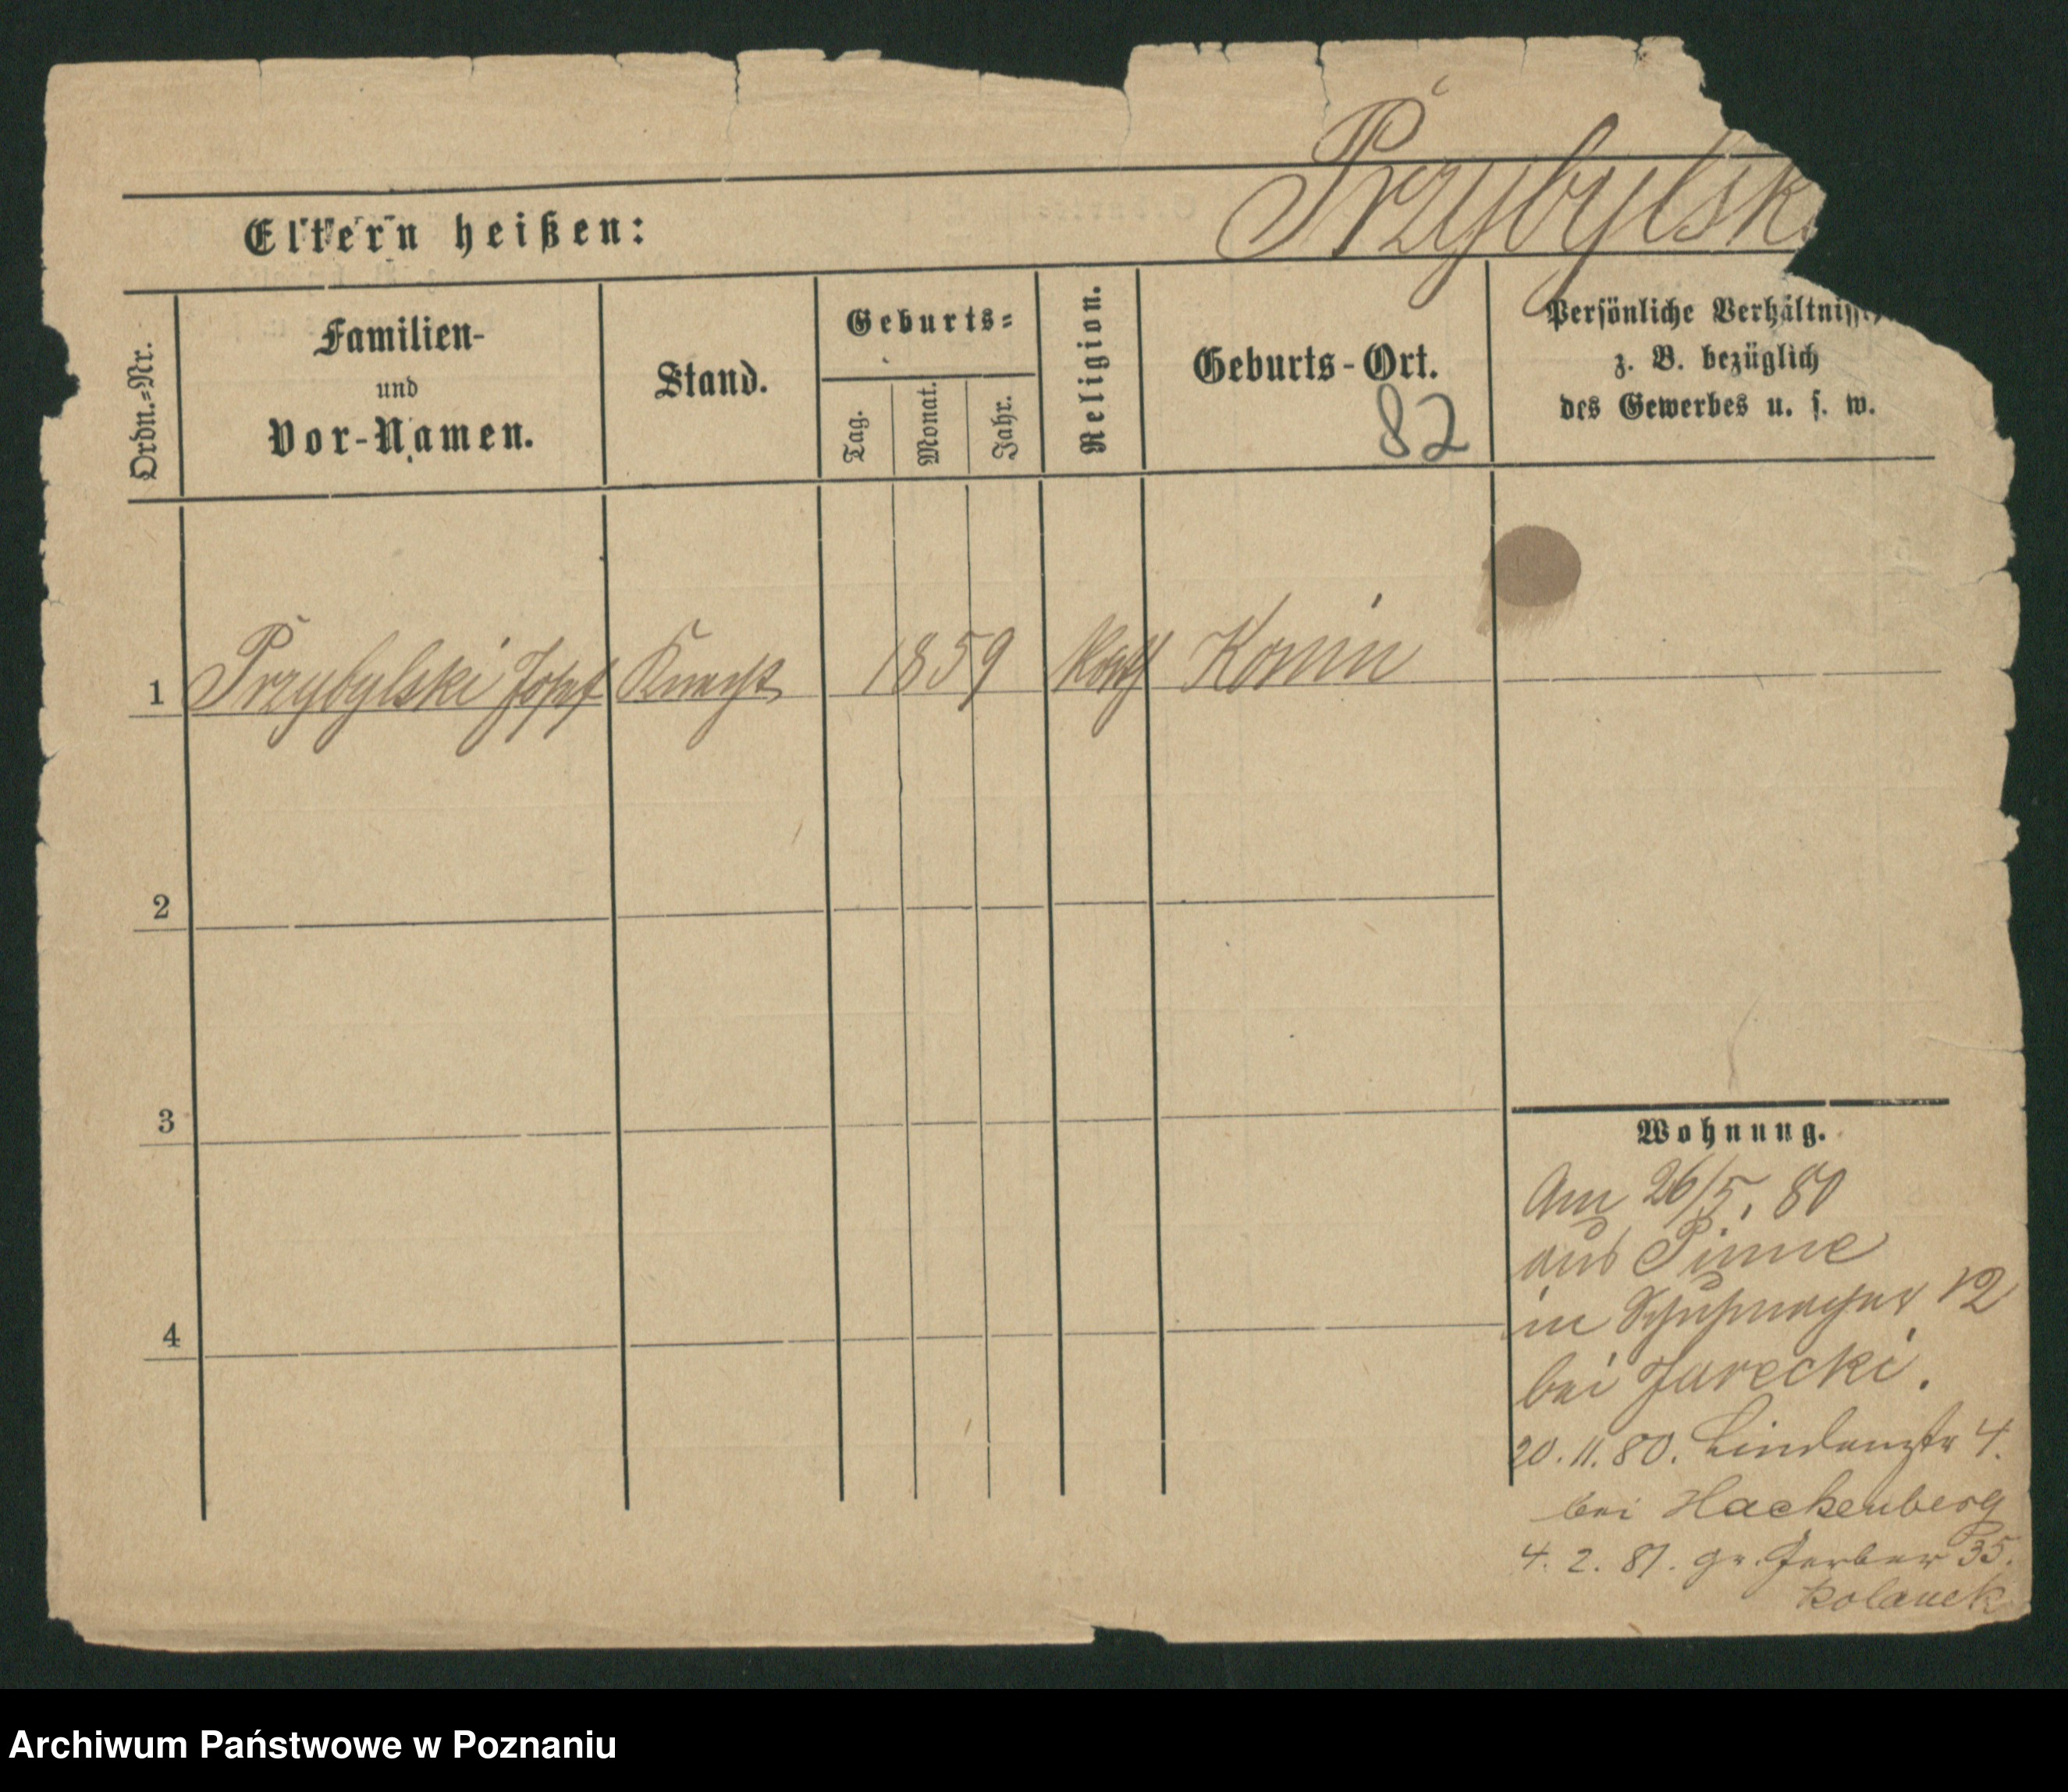 Przybylsk
Eltern heißen:
Ordn.-Nr.
Familien-
und
Vor-Namen.
Stand.
Geburts-
Tag.
Monat.
Jahr.
Religion.
Geburts-Ort.
82
Persönliche Verhältnisse
z. B. bezüglich
des Gewerbes u. s. w.
1 Przybylski Josef Knecht 1859 kath Konin
2
3
4
Wohnung.
Am 26/5. 80
aus Pinne
in Schuhmacher 12
bei Jarecki.
20. 11. 80. Lindenstr 4.
bei Hackenberg
4. 2. 81. gr. Gerber 35.
Kolanek
Archiwum Państwowe w Poznaniu